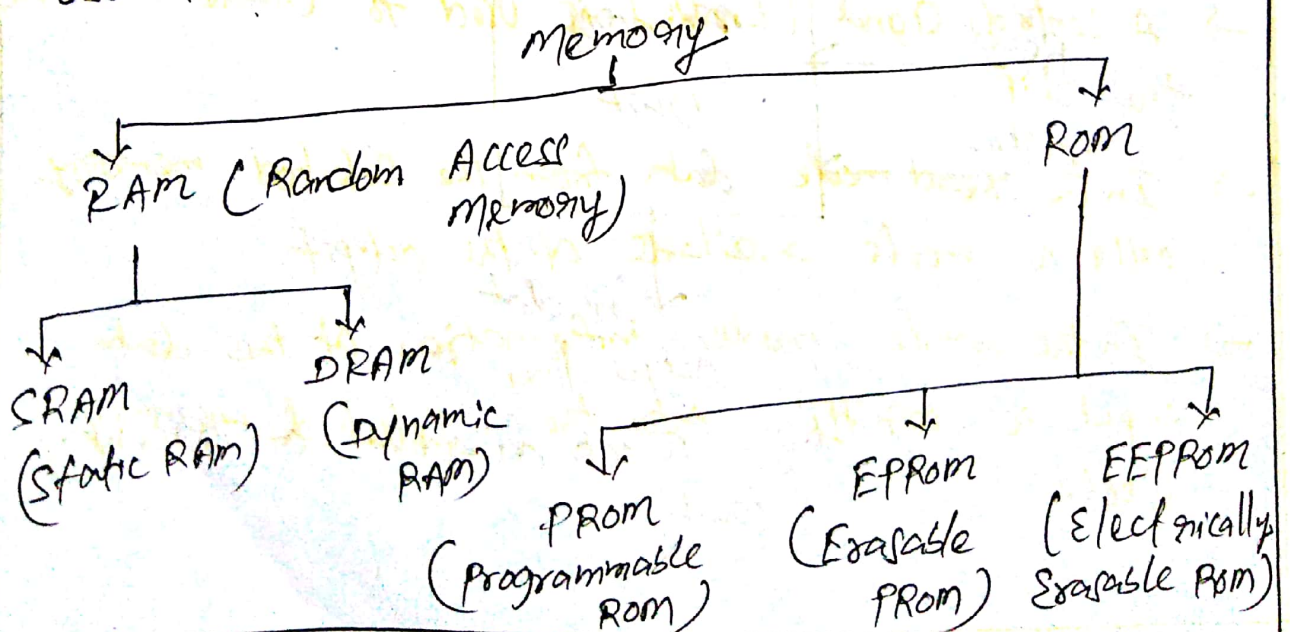 Memory
RAM (Random Access
Memory)
ROM
SRAM
(Static RAM)
DRAM
(Dynamic
RAM)
PROM
(Programmable
ROM)
EPROM
(Erasable
PROM)
EEPROM
(Electrically
Erasable ROM)